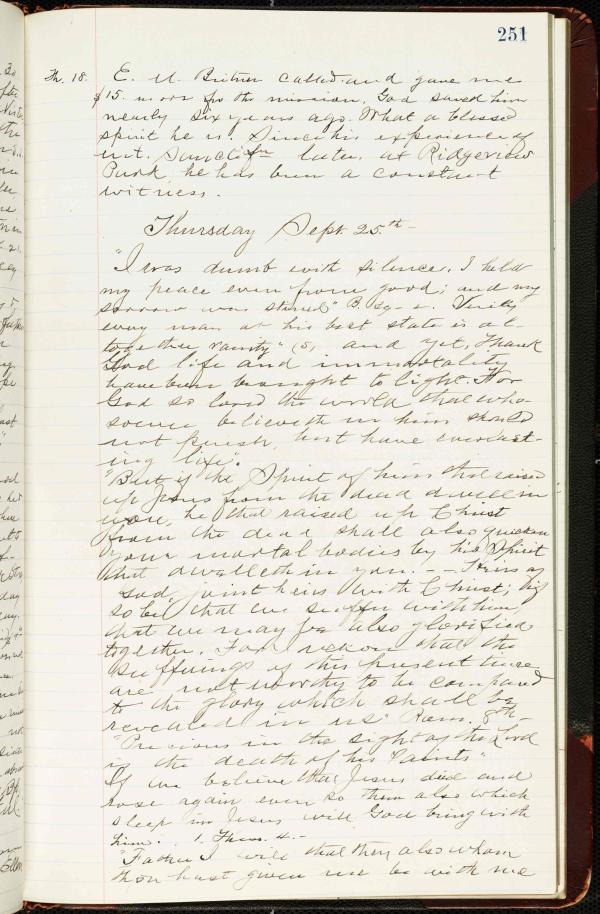 251
Th. 18. E. U. Britner called and gave me
$15. more for the mission. God saved him
nearly six years ago. What a blessed
spirit he is. Since his experience of
ent. Sanctifn later, at Ridgeview
Park he has been a constant
witness.
Thursday Sept. 25.th-
"I was dumb with silence, I held
my peace even from good; and my
sorrow was stirred" 2. Verily
every man at his best state is al-
together vanity" (5) and yet, Thank
God life and immortality
have been brought to light. For
God so loved the world that who-
soever believeth in him should
not perish, but have everlast-
ing life".
"But if the Spirit of him that raised
up Jesus from the dead dwell in
you, he that raised up Christ
from the dead shall also quicken
your mortal bodies by his Spirit
that dwelleth in you. -- Heirs of
God, joint heirs with Christ; if
so be that we suffer with him,
that we may be also glorified
together. For I reckon that the
sufferings of this present time
are not worthy to be compared
to the glory which shall be
revealed in us" Rom. 8th-
"Precious in the sight of the Lord
is the death of his Saints"
If we believe that Jesus died and
rose again even so them also which
sleep in Jesus will God bring with
him. 1. Thess. 4.-
"Father I will that they also whom
thou hast given me be with me